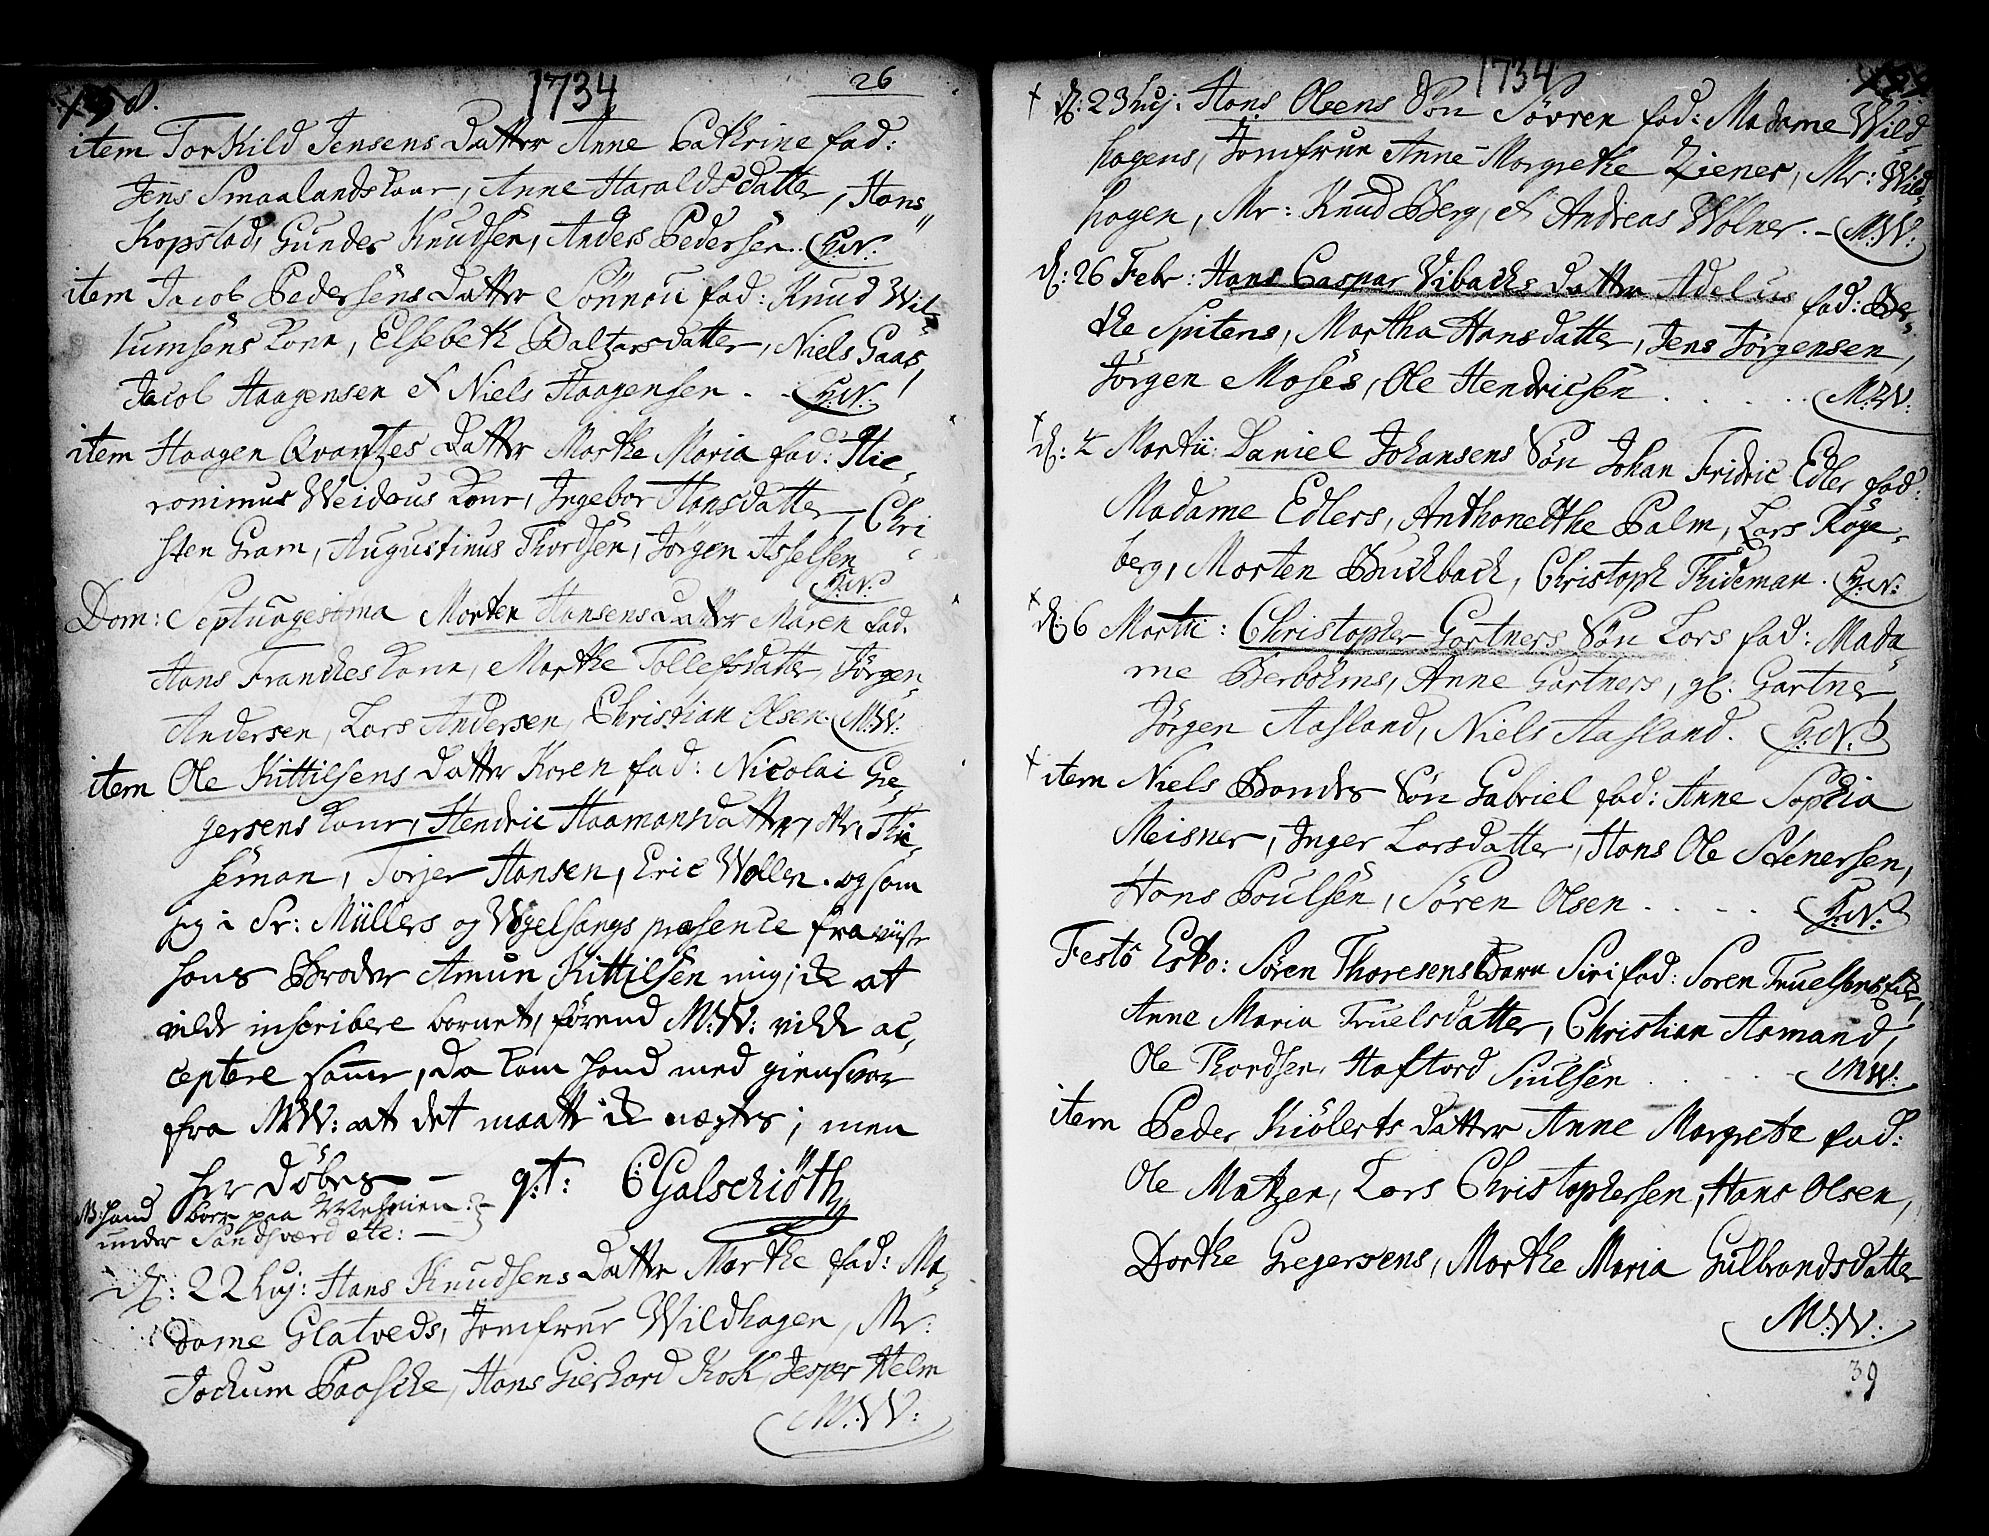 158. 1734 26
item Torkild Jensens Datter Anne Cathrine fad:
Jens Smaalands Konr, Anne Haraldsdatter, Hans
Kopstad, Gunder Knudsen, Anders Pedersen. G:N:
item Jacob Pedersens Datter Sönnou fad: Knud Wil-
lumsens Konr, Elsebeth Baltzarsdatter, Niels Gaas,
Jacob Haagensen & Niels Haagensen. - G:N:
item Haagen Qvantzes Datter Marthe Maria fad: Hie-
ronimus Weidaus Konr, Ingebor Hansdatter, Chri-
sten Gram, Augustinus Thordsen, Jörgen Asselsen
G:N:
Dom: Septuagesima Morten Hansens Datter Maren fad.
Hans Franckes Konr, Marthe Tollefsdatter, Jörgen
Andersen, Lars Andersen, Christian Olsen. M:W:
item Ole Kittilsens Datter Karen fad: Nicolai Gre-
gersens Konr, Hendric Haamansdatter, Mr: Thi-
seman, Torjer Hansen, Eric Wollen. og som
jeg i Sr: Müllers og Vogelsangs præsence fraviiste
hans Broder Amun Kittilsen mig, ik at
vilde inscribere barnet, förend M:W: vilde ac-
ceptere samme, da kom hand med giensvar
fra M:W: at det maatte ik nægtes; men
her döbes — q:t: C:Galschiöth
NB: hand boer paa Meheien:
under Sandsværd etc: —
d: 22 huj: Hans Knudsens Datter Marthe fad: Ma-
dame Glatveds, Jomfrue Wildhagen, Mr:
Jochum Paaske, Hans Gierhard Kok, Jesper Helm
M:W:
1734
+ d: 23 huj: Hans Olsens Sön Sövren fad: Madame Wild-
hagens, Jomfrue Anne Margrethe Ziener, Mr: Wild-
hagen, Mr: Knud Berg, & Andreas Wölner. - M:W:
d: 26 Febr: Hans Caspar Vibachs Datter Adelus fad: Ber-
the Spitens, Martha Hansdatter, Jens Jörgensen,
Jörgen Moses, Ole Hendricsen . . . . . M:W:
+ d: 4 Martii: Daniel Johansens Sön Johan Fridric Edler fad:
Madame Edlers, Anthonethe Palm, Lars Røye-
berg, Morten Buchbach, Christoph Thideman. G:N:
+ d: 6 Martii: Christopher Gartners Sön Lars fad: Mada-
me Berböms, Anne Gartners, gl: Gartner,
Jörgen Aasland, Niels Aasland. G:N:
+ item Niels Bondes Sön Gabriel fad: Anne Sophia
Meisner, Inger Larsdatter, Hans Ole Stenersen,
Hans Poulsen, Sören Olsen . . - . G:N:
Festo Esto: Sören Thoresens Barn Siri fad: Soren Truelsens
Anne Maria Truelsdatter, Christian Asmand,
Ole Thordsen, Haftord Siulsen . . . - M:W:
item Peder Kiölerts Datter Anne Margrete fad:
Ole Matzen, Lars Christophersen, Hans Olsen,
Dorthe Gregersens, Marthe Maria Gulbrandsdatter
M:W:
39